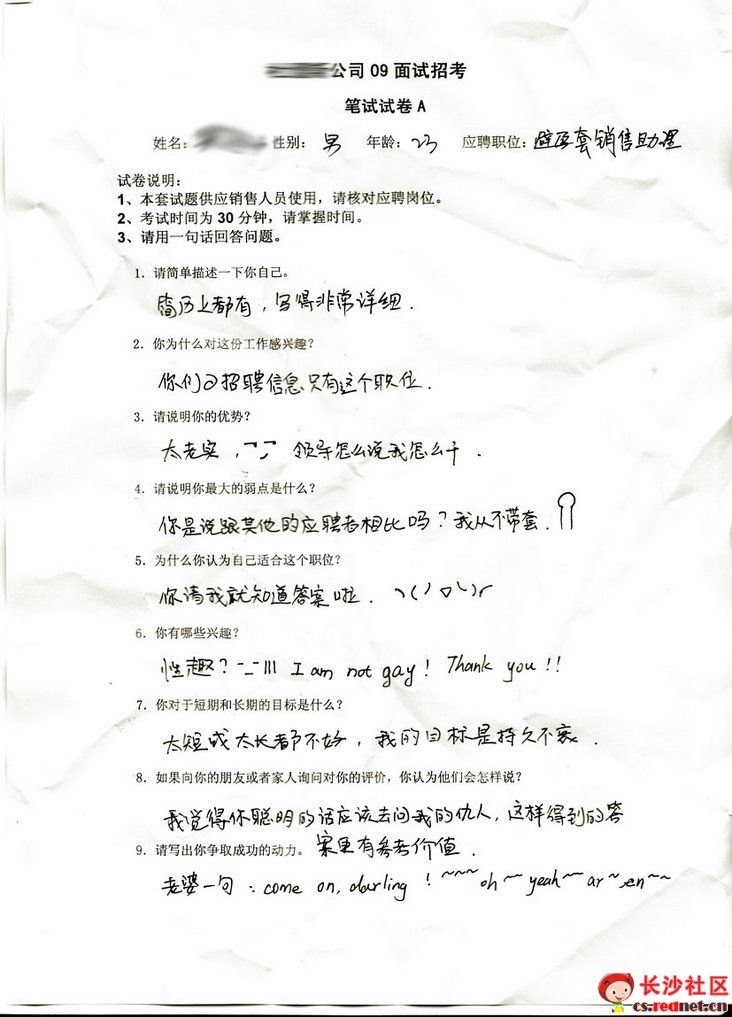 公司 09 面试招考
笔试试卷 A
姓名： 性别：男 年龄：23 应聘职位：避孕套销售助理
试卷说明：
1、本套试题供应销售人员使用，请核对应聘岗位。
2、考试时间为 30 分钟，请掌握时间。
3、请用一句话回答问题。
1. 请简单描述一下你自己。
简历上都有，写得非常详细．
2. 你为什么对这份工作感兴趣？
你们的招聘信息只有这个职位．
3. 请说明你的优势？
太老实， 领导怎么说我怎么干．
4. 请说明你最大的弱点是什么？
你是说跟其他的应聘者相比吗？我从不带套．
5. 为什么你认为自己适合这个职位？
你请我就知道答案啦．
6. 你有哪些兴趣？
性趣？ I am not gay! Thank you!!
7. 你对于短期和长期的目标是什么？
太短或太长都不好，我的目标是持久不衰．
8. 如果向你的朋友或者家人询问对你的评价，你认为他们会怎样说？
我觉得你聪明的话应该去问我的仇人，这样得到的答
案更有参考价值．
9. 请写出你争取成功的动力。
老婆一句：come on, darling !~~~oh~yeah~ar~en~~
长沙社区
cs.rednet.cn